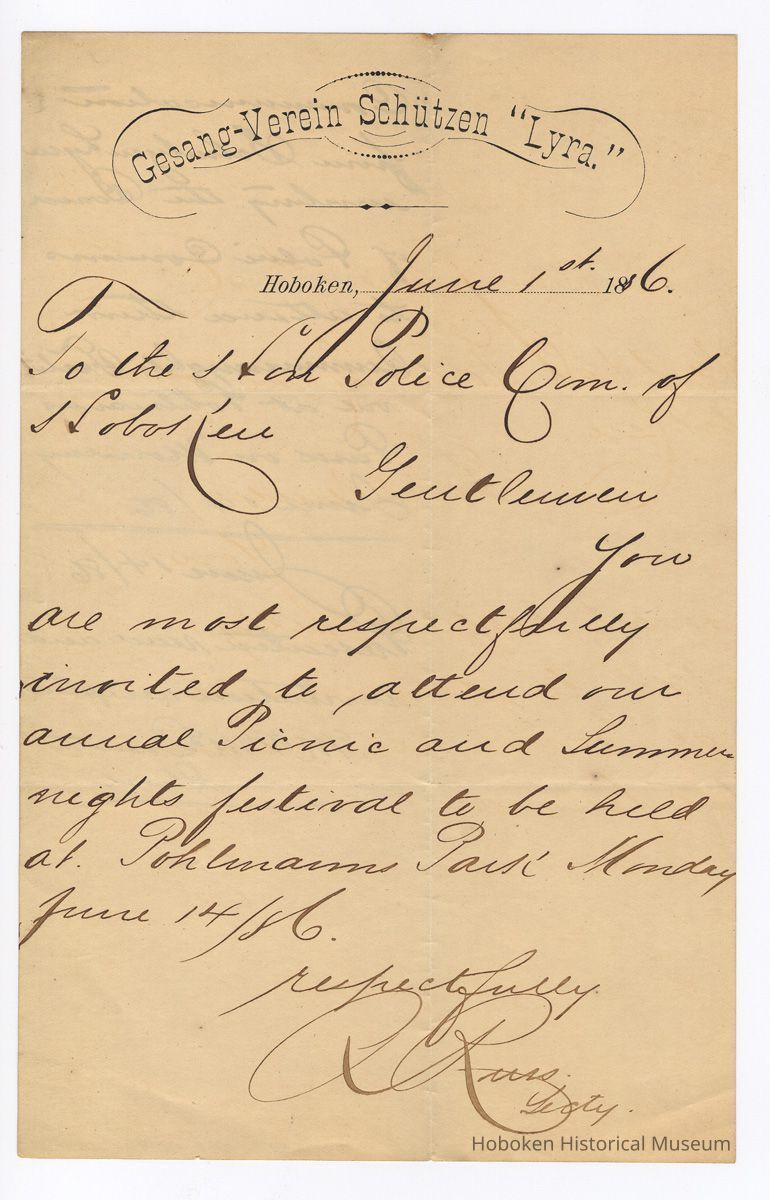 Gesang-Verein Schützen "Lyra."
Hoboken, June 1st. 1886.
To the Hon Police Com. of
Hoboken
Gentlemen
You
are most respectfully
invited to attend our
annual Picnic and Summer
nights festival to be held
at. Pohlmanns Park Monday
June 14/86.
respectfully
R Russ.
Secty.
Hoboken Historical Museum